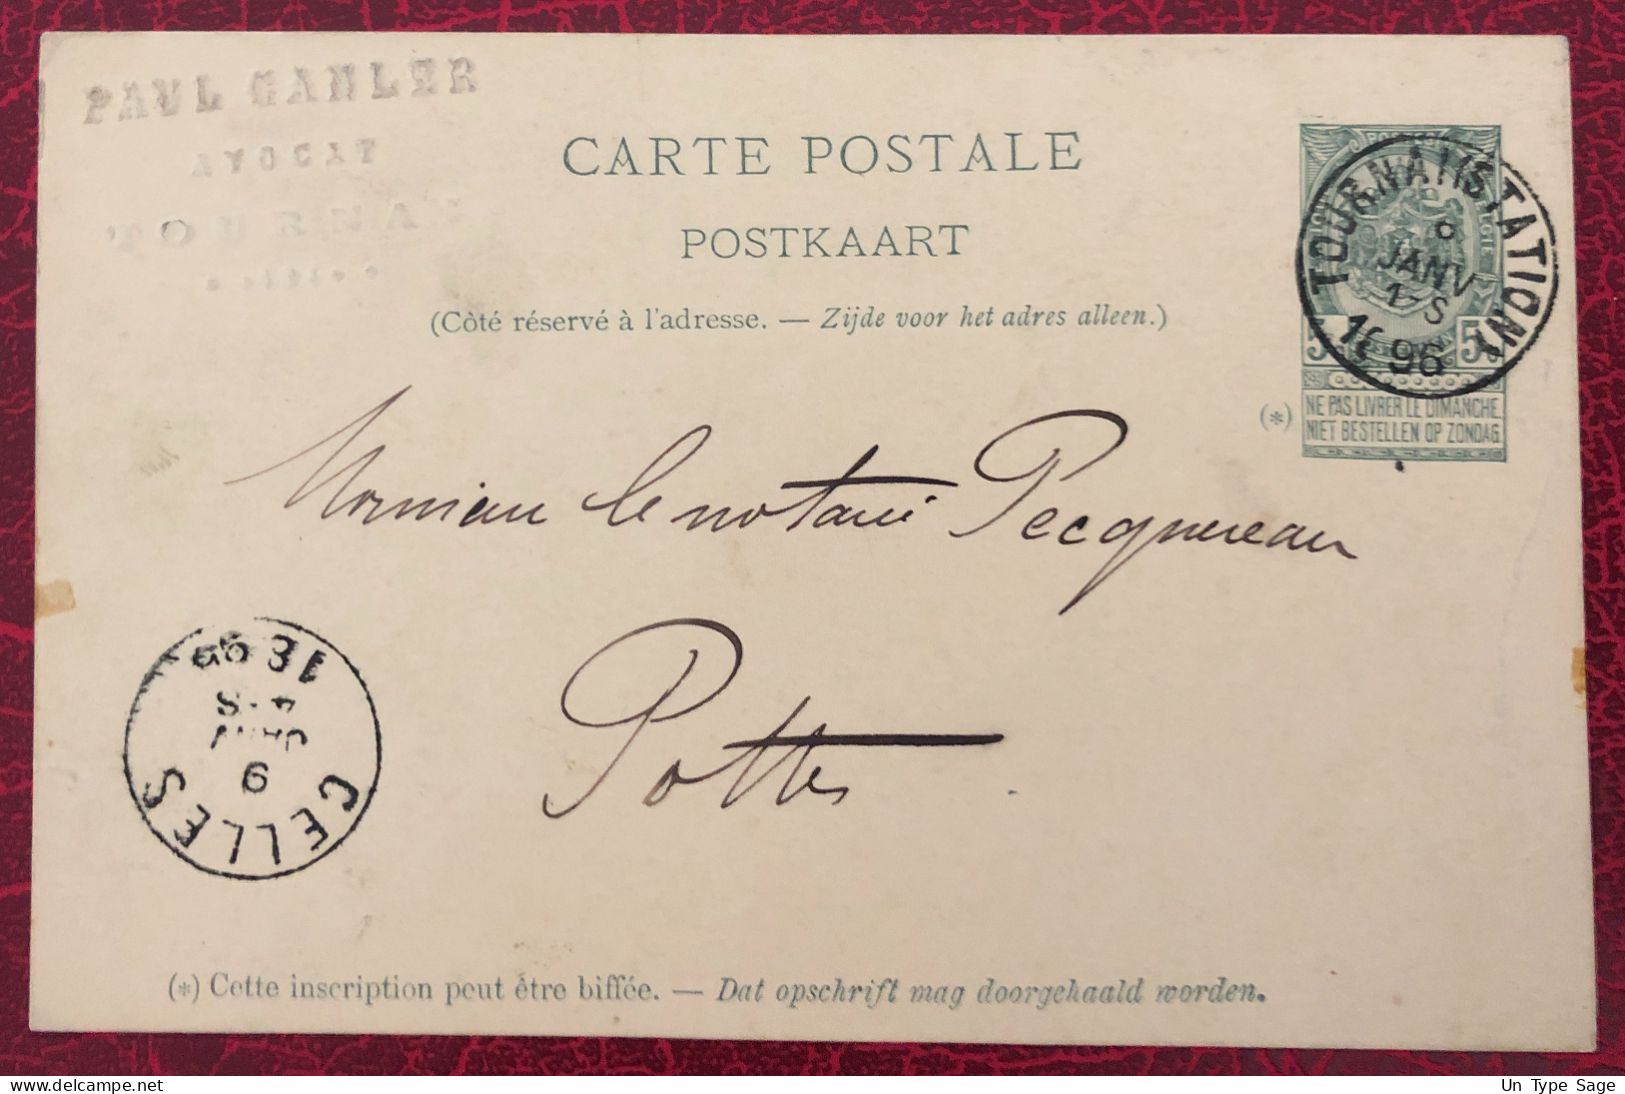 PAUL GANLER
AVOCAT
TOURNAI
CARTE POSTALE
POSTKAART
(Côté réservé à l'adresse. — Zijde voor het adres alleen.)
TOURNAI (STATION)
8
JANV
1-S
96
5 5
(*) NE PAS LIVRER LE DIMANCHE.
NIET BESTELLEN OP ZONDAG.
Monsieur le notaire Pecquereau
Pottes
CELLES
9
JANV
4-S
(*) Cette inscription peut être biffée. — Dat opschrift mag doorgehaald worden.
Un Type Sage